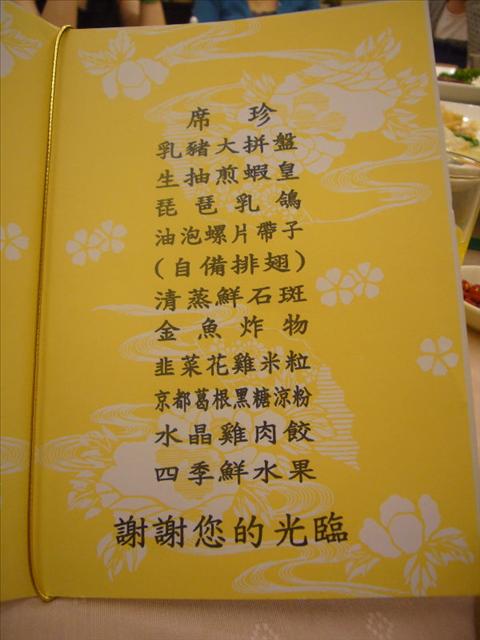 席珍
乳豬大拼盤
生抽煎蝦皇
琵琶乳鴿
油泡螺片帶子
(自備排翅)
清蒸鮮石斑
金魚炸物
韭菜花雞米粒
京都葛根黑糖涼粉
水晶雞肉餃
四季鮮水果
謝謝您的光臨